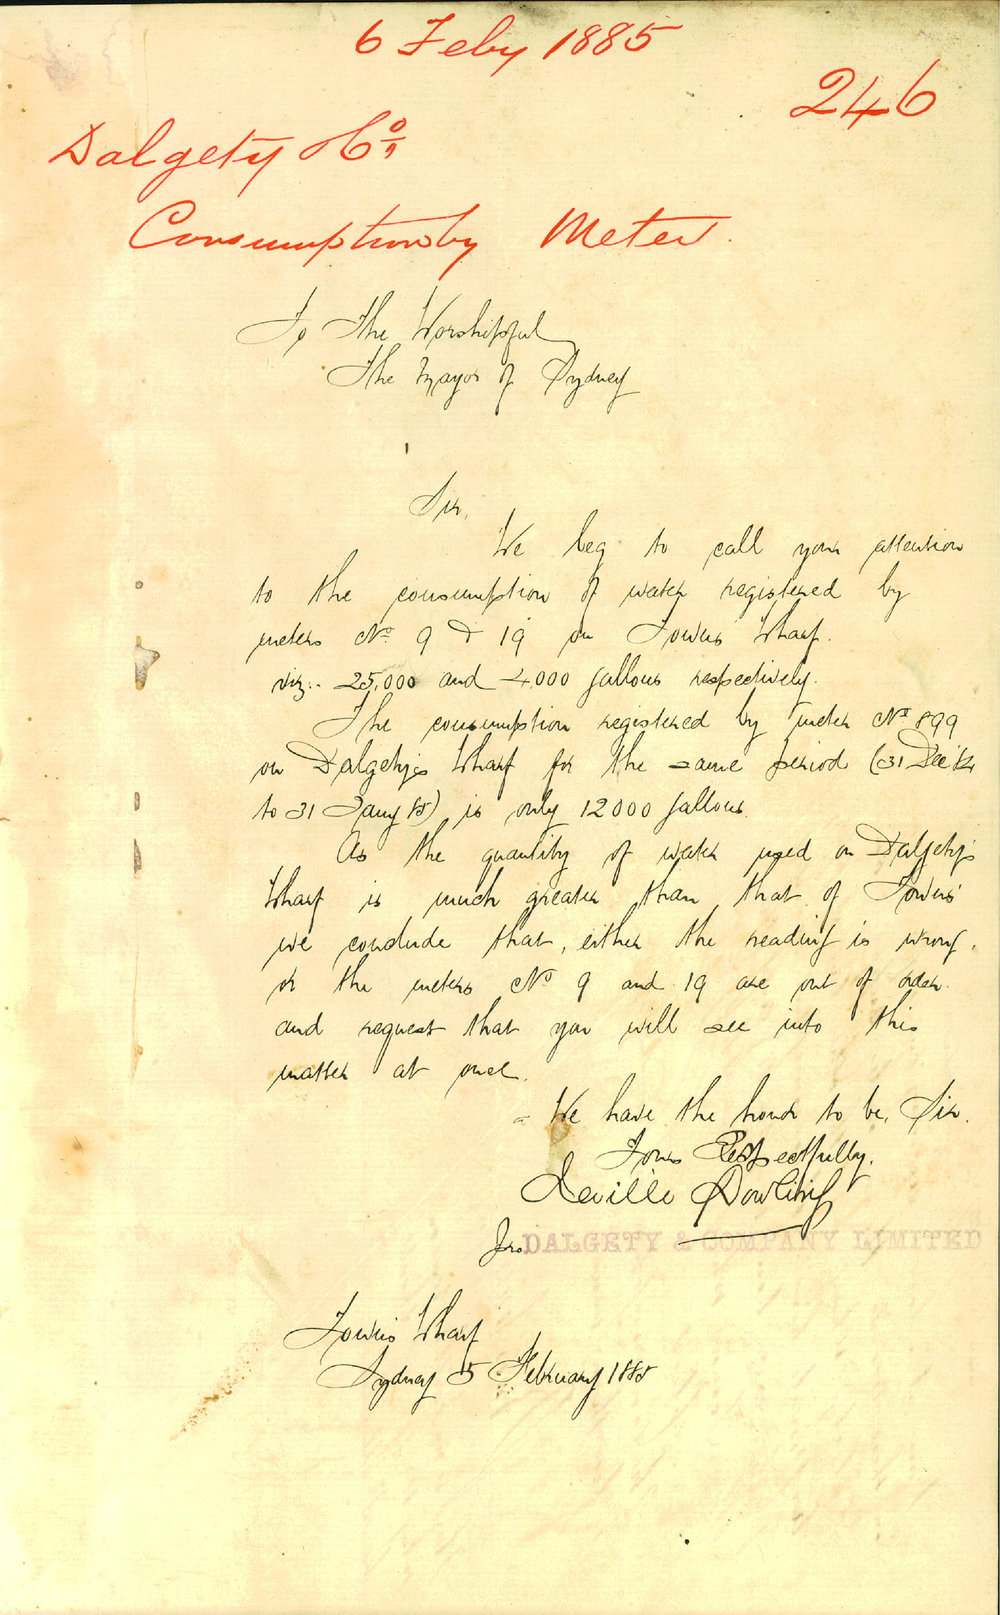 6 Feby 1885
246
Dalgety & Co,
Consumption by Meter.
To The Worshipful
The Mayor of Sydney
Sir,
We beg to call your attention
to the consumption of water registered by
meters No 9 & 19 on Towns Wharf.
viz:- 25,000 and 4,000 gallons respectively.
The consumption registered by meter No 899
on Dalgetys Wharf for the same period (31 Dec 84
to 31 Jany 85) is only 12000 gallons.
As the quantity of water used on Dalgety's
Wharf is much greater than that of Towns'
we conclude that, either the reading is wrong,
or the meters No 9 and 19 are out of order.
and request that you will see into this
matter at once.
- We have the honor to be, Sir.
Yours Respectfully.
Neville Dowling
Pro DALGETY & COMPANY LIMITED
Towns Wharf
Sydney 5 February 1885